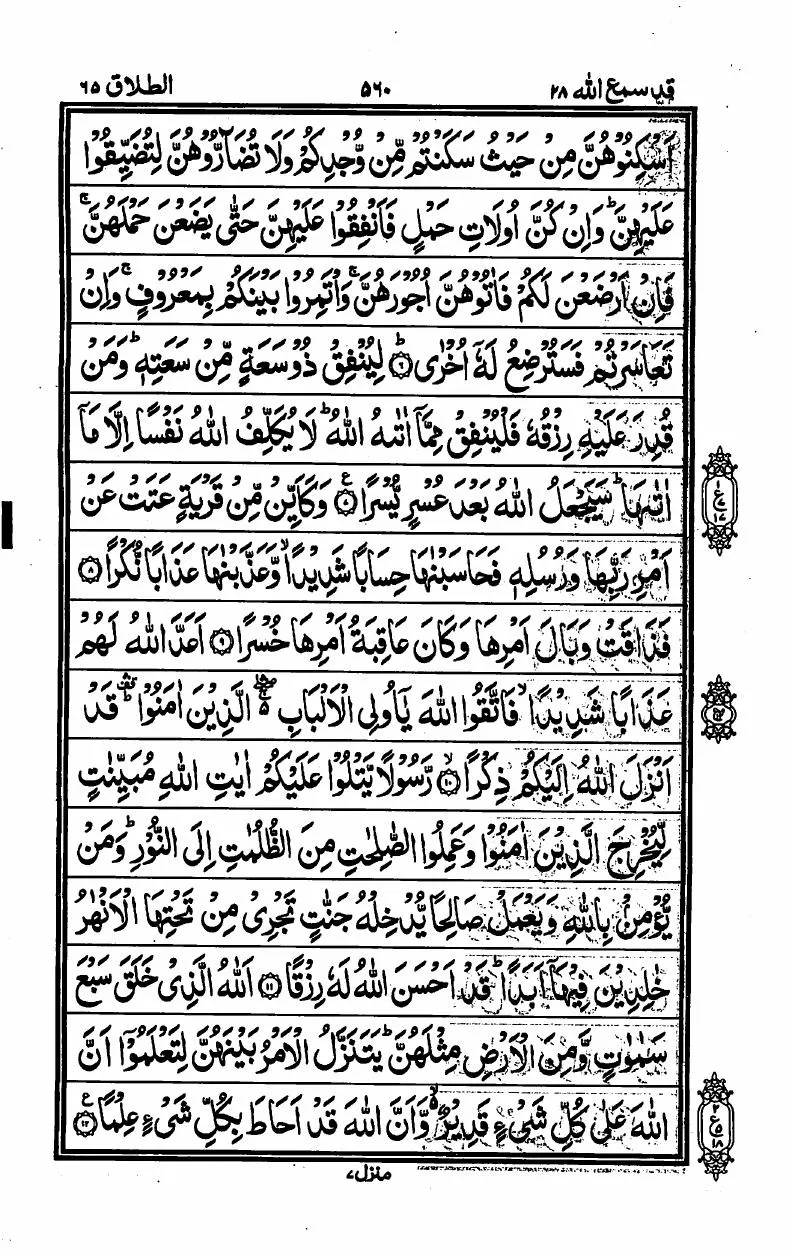 قد سمع الله ٢٨ ٥٦٠ الطلاق ٦٥
اَسْكِنُوْهُنَّ مِنْ حَيْثُ سَكَنْتُمْ مِّنْ وُّجْدِكُمْ وَلَا تُضَآرُّوْهُنَّ لِتُضَيِّقُوْا
عَلَيْهِنَّ ؕ وَاِنْ كُنَّ اُولَاتِ حَمْلٍ فَاَنْفِقُوْا عَلَيْهِنَّ حَتّٰى يَضَعْنَ حَمْلَهُنَّ ۚ
فَاِنْ اَرْضَعْنَ لَكُمْ فَاٰتُوْهُنَّ اُجُوْرَهُنَّ ۚ وَاْتَمِرُوْا بَيْنَكُمْ بِمَعْرُوْفٍ ۚ وَاِنْ
تَعَاسَرْتُمْ فَسَتُرْضِعُ لَهٗۤ اُخْرٰى ۟ؕ۶ لِيُنْفِقْ ذُوْ سَعَةٍ مِّنْ سَعَتِهٖ ؕ وَمَنْ
قُدِرَ عَلَيْهِ رِزْقُهٗ فَلْيُنْفِقْ مِمَّاۤ اٰتٰىهُ اللّٰهُ ؕ لَا يُكَلِّفُ اللّٰهُ نَفْسًا اِلَّا مَاۤ
اٰتٰىهَا ؕ سَيَجْعَلُ اللّٰهُ بَعْدَ عُسْرٍ يُّسْرًا ۟۷ وَكَاَيِّنْ مِّنْ قَرْيَةٍ عَتَتْ عَنْ
اَمْرِ رَبِّهَا وَرُسُلِهٖ فَحَاسَبْنٰهَا حِسَابًا شَدِيْدًا ۙ وَّعَذَّبْنٰهَا عَذَابًا نُّكْرًا ۸
فَذَاقَتْ وَبَالَ اَمْرِهَا وَكَانَ عَاقِبَةُ اَمْرِهَا خُسْرًا ۹ اَعَدَّ اللّٰهُ لَهُمْ
عَذَابًا شَدِيْدًا ۙ فَاتَّقُوا اللّٰهَ يٰۤاُولِى الْاَلْبَابِ ۛۖ۬ۚ الَّذِيْنَ اٰمَنُوْا ۛؕ قَدْ
اَنْزَلَ اللّٰهُ اِلَيْكُمْ ذِكْرًا ۙ۱۰ رَّسُوْلًا يَّتْلُوْا عَلَيْكُمْ اٰيٰتِ اللّٰهِ مُبَيِّنٰتٍ
لِّيُخْرِجَ الَّذِيْنَ اٰمَنُوْا وَعَمِلُوا الصّٰلِحٰتِ مِنَ الظُّلُمٰتِ اِلَى النُّوْرِ ؕ وَمَنْ
يُّؤْمِنْۢ بِاللّٰهِ وَيَعْمَلْ صَالِحًا يُّدْخِلْهُ جَنّٰتٍ تَجْرِىْ مِنْ تَحْتِهَا الْاَنْهٰرُ
خٰلِدِيْنَ فِيْهَاۤ اَبَدًا ؕ قَدْ اَحْسَنَ اللّٰهُ لَهٗ رِزْقًا ۱۱ اَللّٰهُ الَّذِىْ خَلَقَ سَبْعَ
سَمٰوٰتٍ وَّمِنَ الْاَرْضِ مِثْلَهُنَّ ؕ يَتَنَزَّلُ الْاَمْرُ بَيْنَهُنَّ لِتَعْلَمُوْۤا اَنَّ
اللّٰهَ عَلٰى كُلِّ شَىْءٍ قَدِيْرٌ ۙ۬ وَّاَنَّ اللّٰهَ قَدْ اَحَاطَ بِكُلِّ شَىْءٍ عِلْمًا ۱۲
منزل ۷